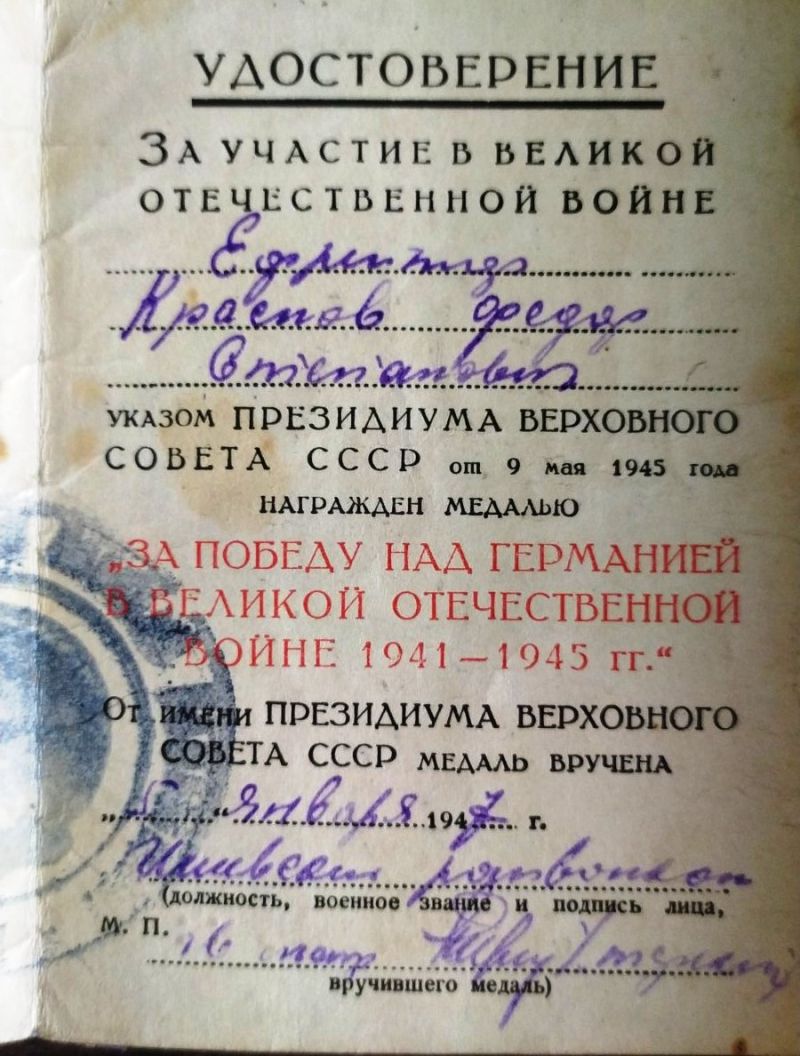 УДОСТОВЕРЕНИЕ
ЗА УЧАСТИЕ В ВЕЛИКОЙ
ОТЕЧЕСТВЕННОЙ ВОЙНЕ
Ефрейтор
Краснов Федор
Степанович
УКАЗОМ ПРЕЗИДИУМА ВЕРХОВНОГО
СОВЕТА СССР от 9 мая 1945 года
НАГРАЖДЕН МЕДАЛЬЮ
„ЗА ПОБЕДУ НАД ГЕРМАНИЕЙ
В ВЕЛИКОЙ ОТЕЧЕСТВЕННОЙ
ВОЙНЕ 1941—1945 гг.“
От имени ПРЕЗИДИУМА ВЕРХОВНОГО
СОВЕТА СССР МЕДАЛЬ ВРУЧЕНА
„5“ января 1947 г.
райвоенком
(должность, военное звание и подпись лица,
М. П.
вручившего медаль)